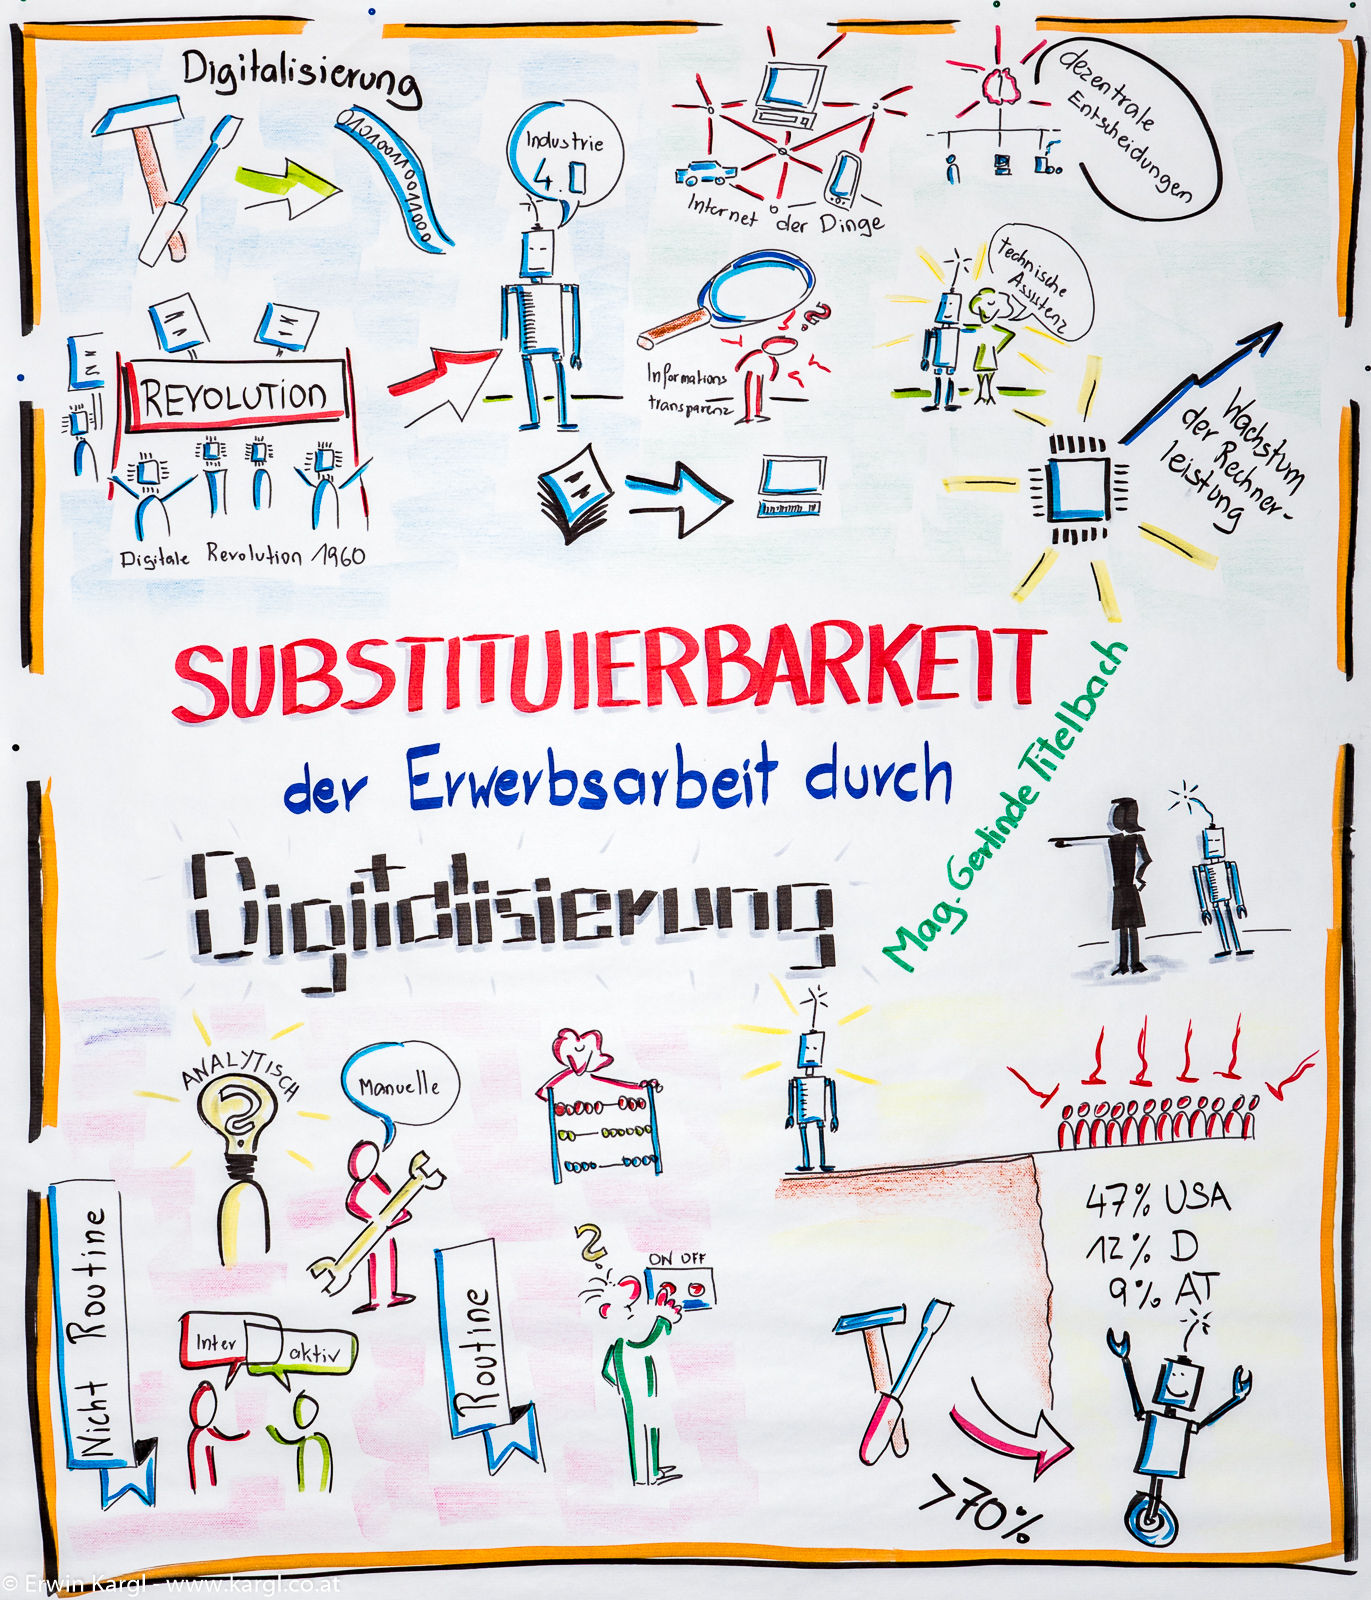 Digitalisierung
0101001100011000
Industrie
4.0
Internet der Dinge
dezentrale
Entscheidungen
Informations
transparenz
technische
Assistenz
REVOLUTION
Digitale Revolution 1960
Wachstum
der Rechner-
leistung
SUBSTITUIERBARKEIT
der Erwerbsarbeit durch
Digitalisierung
Mag. Gerlinde Titelbach
ANALYTISCH
Manuelle
Nicht Routine
Inter
aktiv
Routine
ON OFF
47% USA
12% D
9% AT
>70%
© Erwin Kargl - www.kargl.co.at